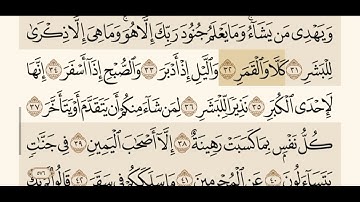 وَيَهْدِى مَن يَشَآءُ ۚ وَمَا يَعْلَمُ جُنُودَ رَبِّكَ إِلَّا هُوَ ۚ وَمَا هِىَ إِلَّا ذِكْرَىٰ
لِلْبَشَرِ ٣١ كَلَّا وَٱلْقَمَرِ ٣٢ وَٱلَّيْلِ إِذْ أَدْبَرَ ٣٣ وَٱلصُّبْحِ إِذَآ أَسْفَرَ ٣٤ إِنَّهَا
لَإِحْدَى ٱلْكُبَرِ ٣٥ نَذِيرًا لِّلْبَشَرِ ٣٦ لِمَن شَآءَ مِنكُمْ أَن يَتَقَدَّمَ أَوْ يَتَأَخَّرَ ٣٧
كُلُّ نَفْسٍۭ بِمَا كَسَبَتْ رَهِينَةٌ ٣٨ إِلَّآ أَصْحَٰبَ ٱلْيَمِينِ ٣٩ فِى جَنَّٰتٍ
يَتَسَآءَلُونَ ٤٠ عَنِ ٱلْمُجْرِمِينَ ٤١ مَا سَلَكَكُمْ فِى سَقَرَ ٤٢ قَالُوا۟ لَمْ نَكُ
٥٧٦